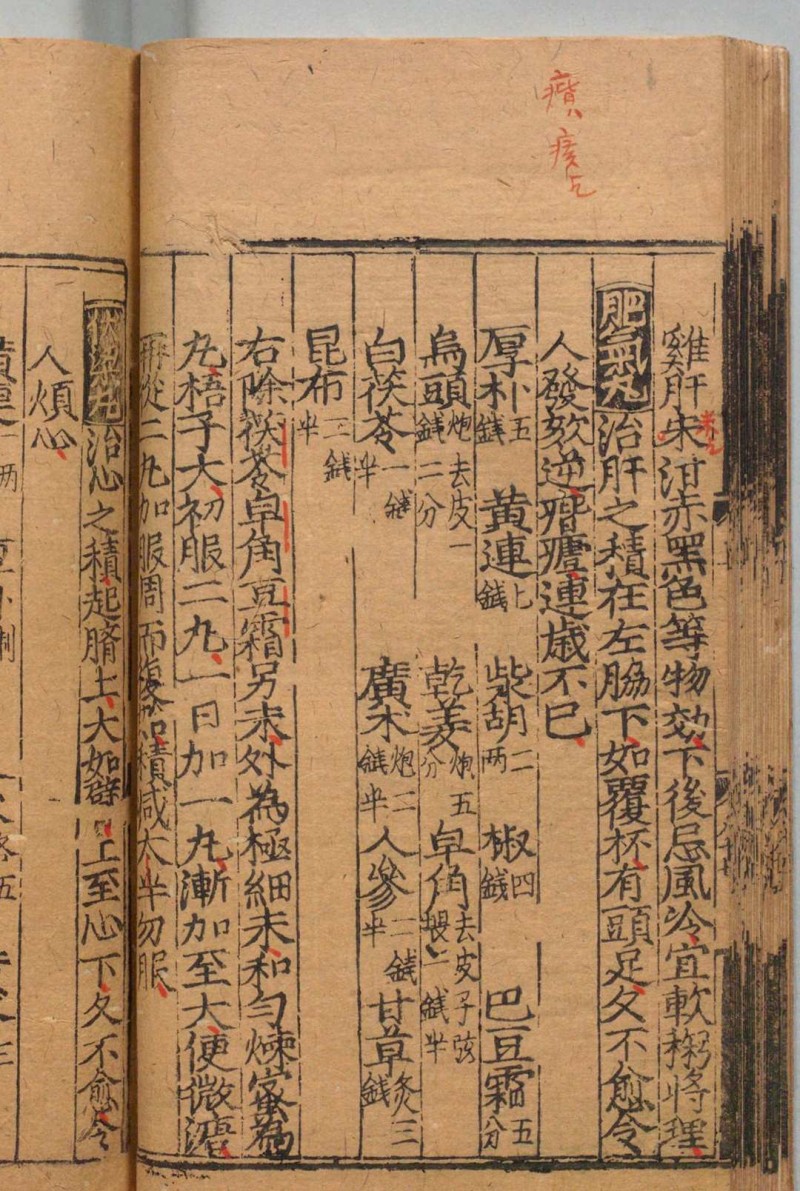 癀痎
雞肝朱汨赤黑色等物効下後忌風冷宜軟粥將理
肥氣丸治肝之積在左脇下如覆杯有頭足久不愈令
人發欬逆痎瘧連歲不已
厚朴五錢 黃連七錢 柴胡二两 椒四錢 巴豆霜五分
烏頭炮去皮一錢二分 乾姜炮五分 皁角去皮子弦煨二錢半
白茯苓一錢半 廣朮炮二錢半 人參二錢半 甘草炙三錢
昆布二錢半
右除茯苓皁角豆霜另末外為極細末和勻煉蜜為
丸梧子大初服二丸一日加一丸漸加至大便微溏
再從二丸加服周而復始積減大半勿服
伏梁丸治心之積起臍上大如臂上至心下久不愈令
人煩心